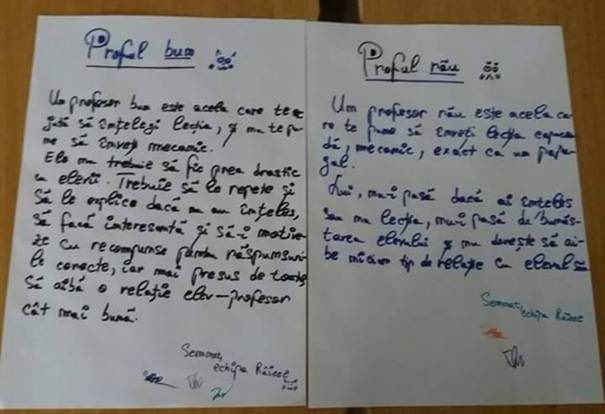 Proful bun
Un profesor bun este acela care te a-
jută să înțelegi lecția, și nu te pu-
ne să înveți mecanic.
El nu trebuie să fie prea drastic
cu elevii. Trebuie să le repete și
să le explice dacă nu au înțeles,
să facă interesantă și să-i motive-
ze cu recompense pentru răspunsuri-
le corecte, iar mai presus de toate,
să aibă o relație elev-profesor
cât mai bună.
Semnat,
echipa
Proful rău
Un profesor rău este acela ca-
re te pune să înveți lecția
mecanic, exact ca un papa-
gal.
Lui, nu-i pasă dacă ai înțeles
sau nu lecția, nu-i pasă de bunăs-
tarea elevului și nu dorește să ai-
be niciun tip de relație cu elevul său
Semnat,
echipa